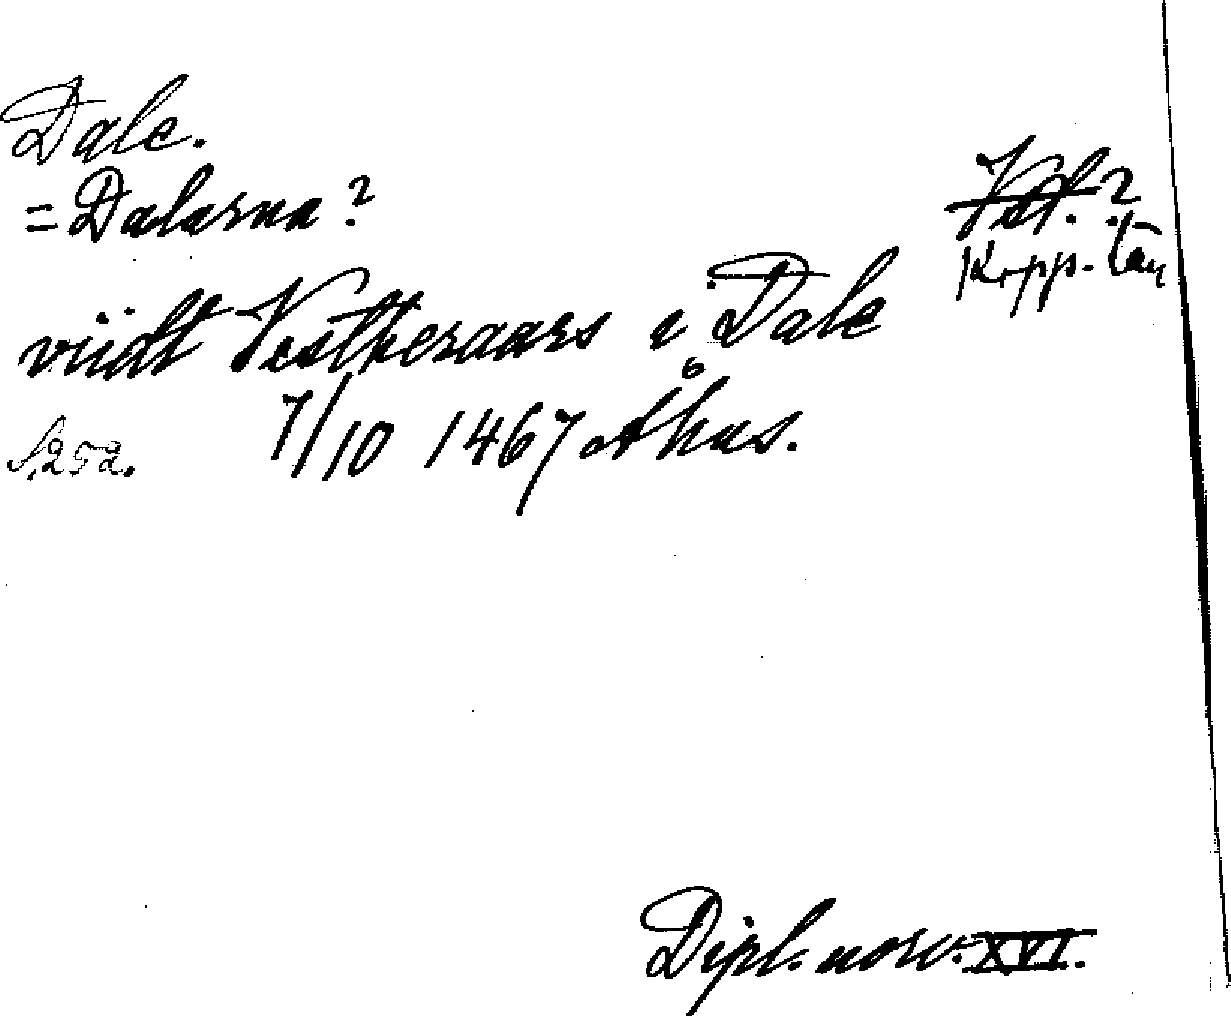 Dale.
= Dalarna?
Vstl.?
Kopp. län
viidt Vestheraars i Dale
S. 252. 7/10 1467 Åhus.
Dipl. norv. XVI.